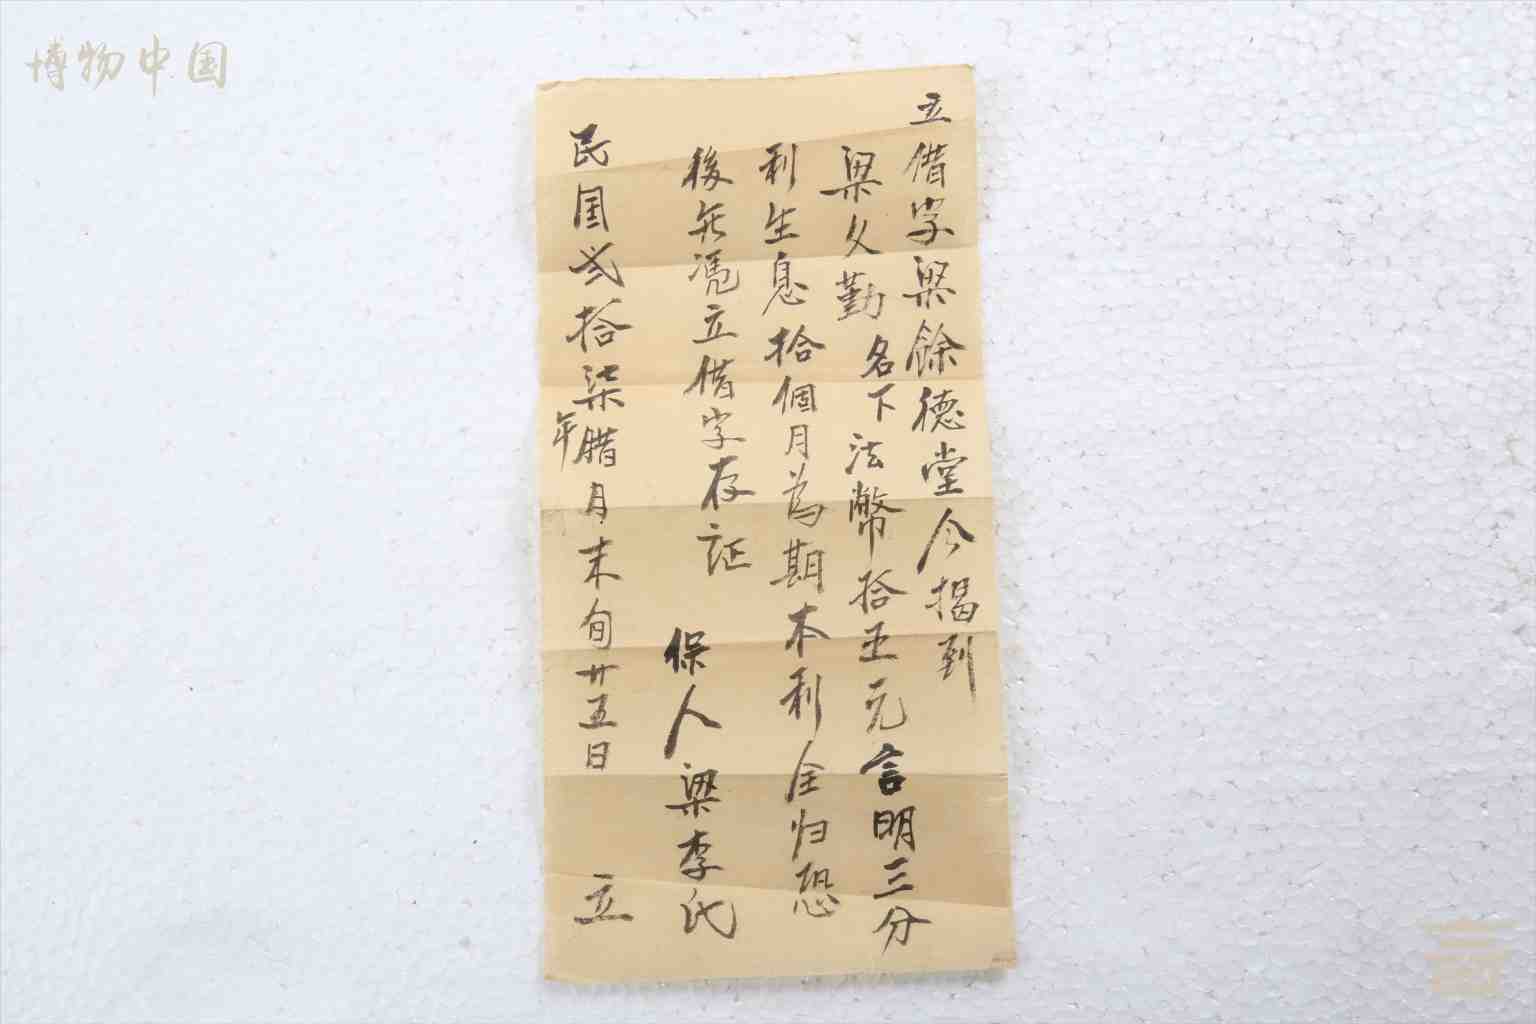 博物中国
立借字梁餘德堂今揭到
梁久勤名下法幣拾五元言明三分
利生息拾個月為期本利全归恐
後無憑立借字存证
保人梁李氏
民国弍拾柒年腊月末旬廿五日
立